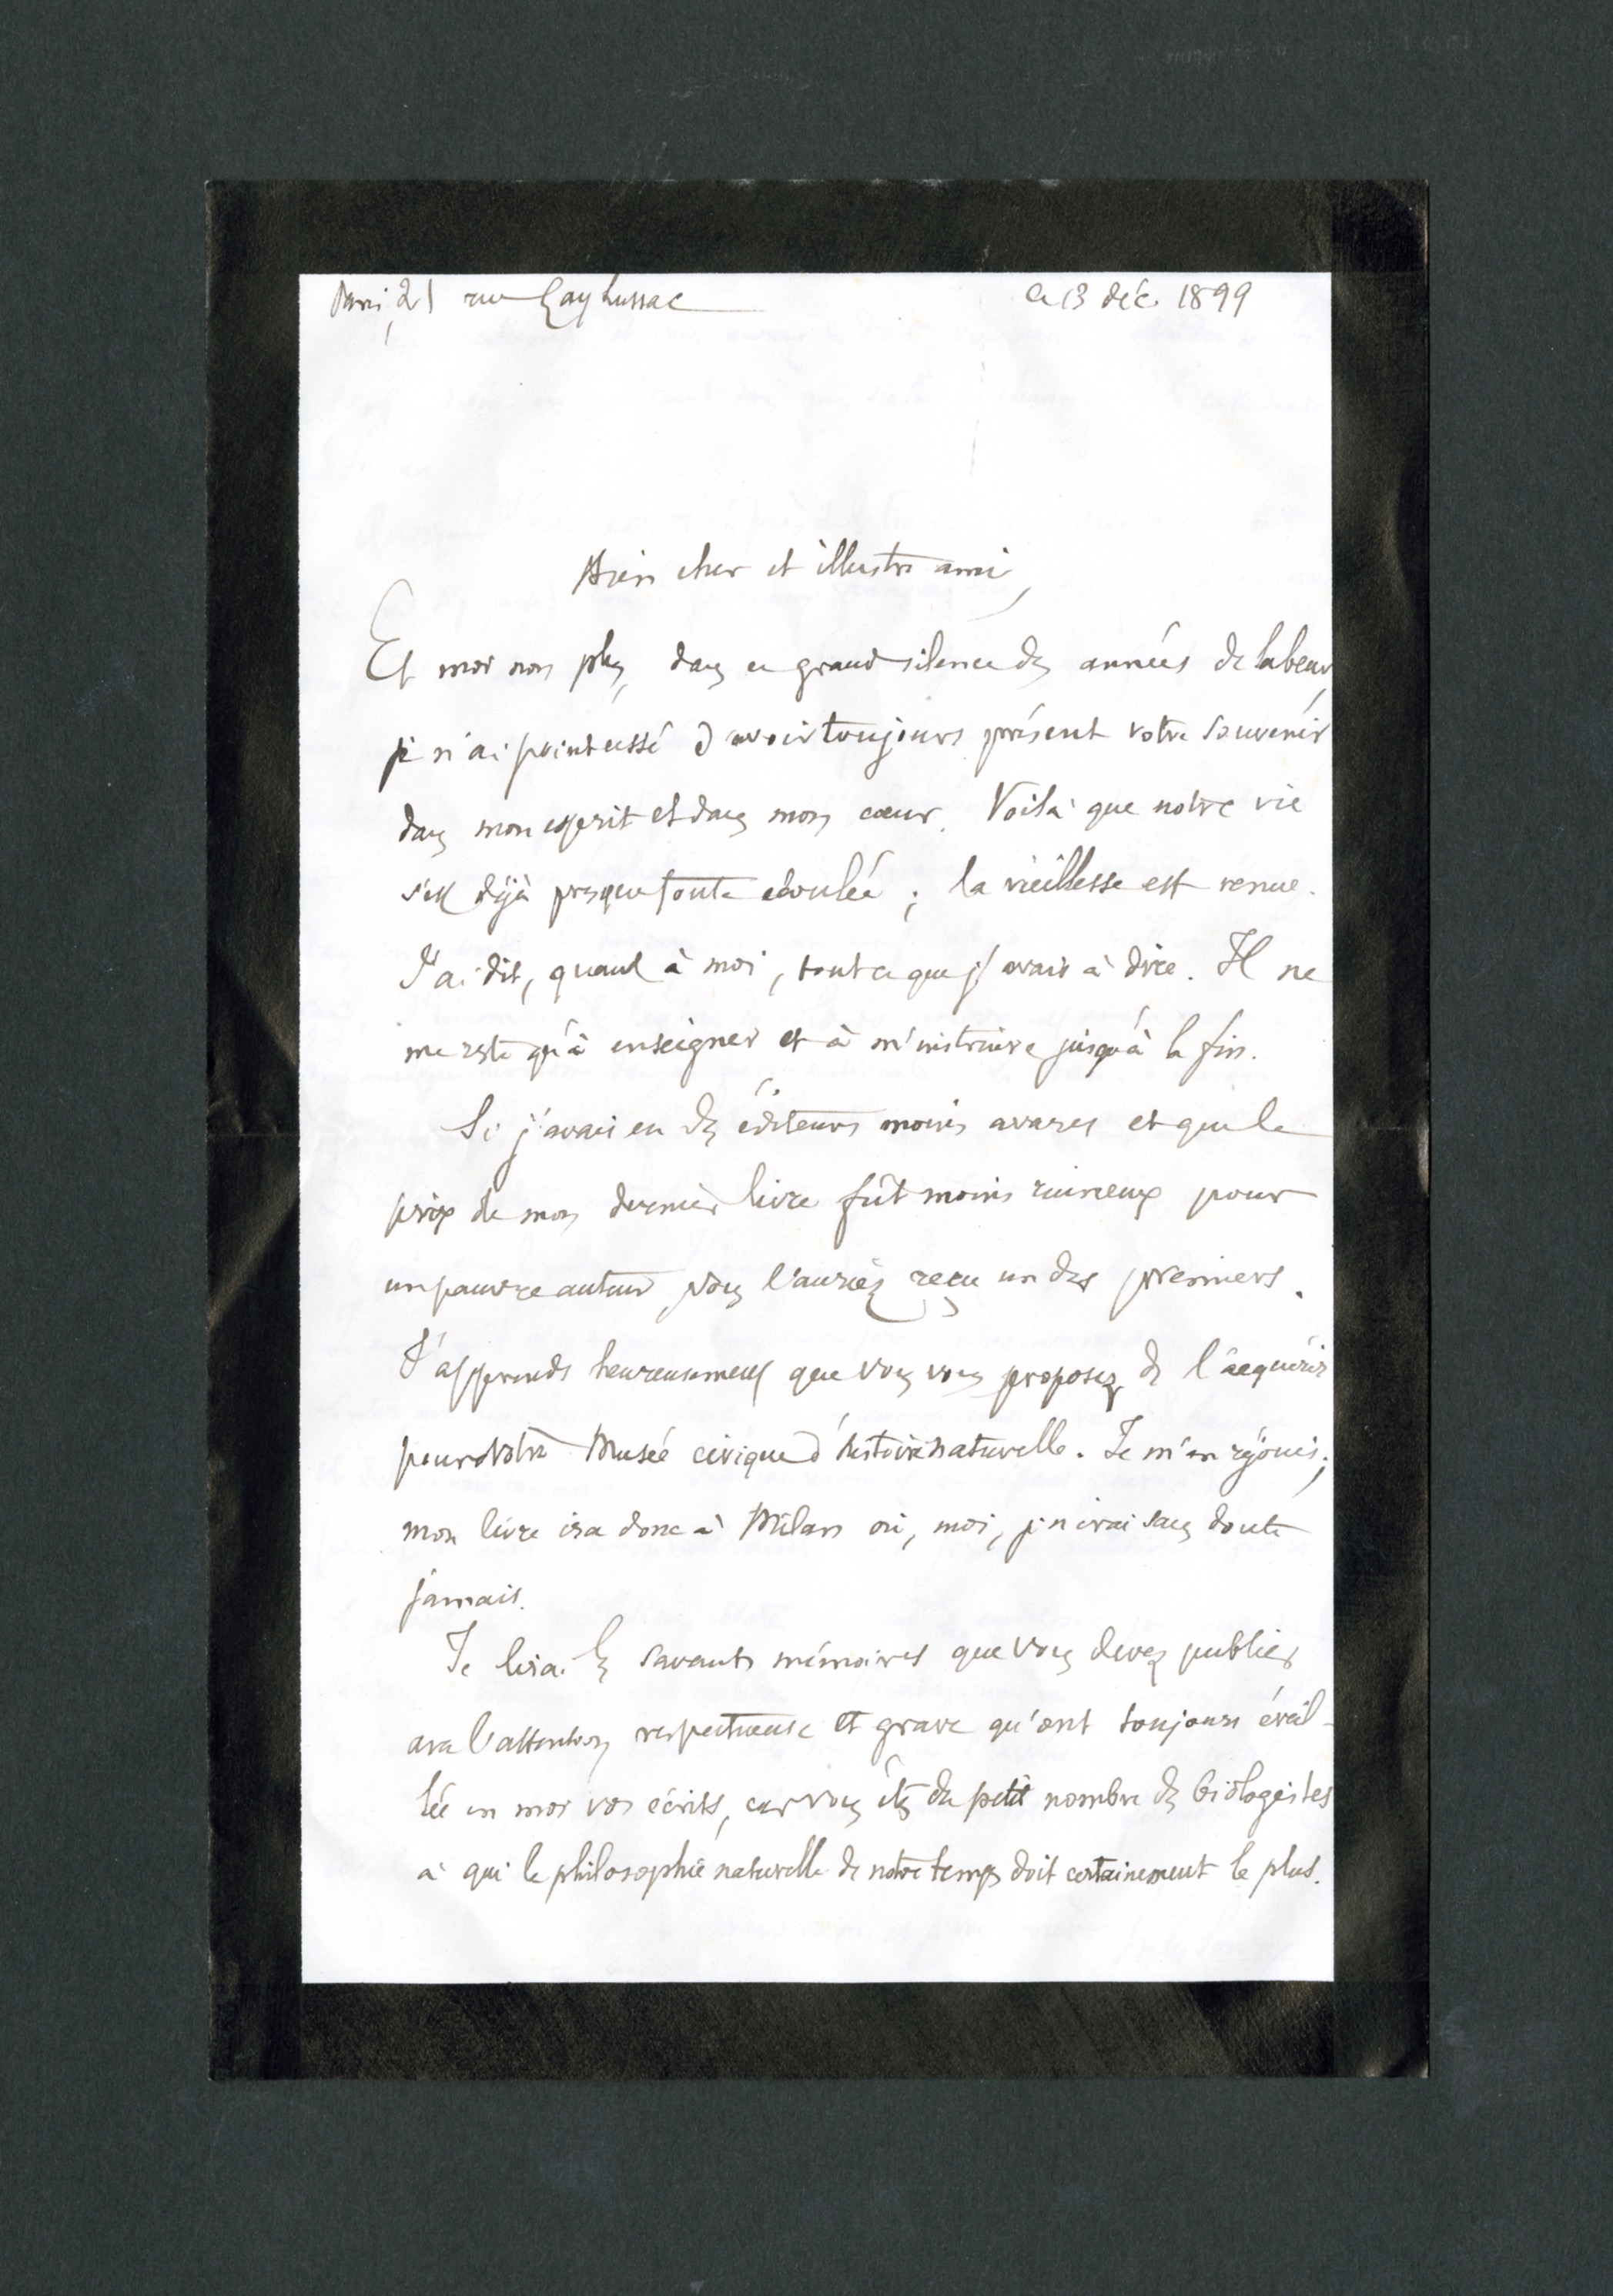 Paris, 21 rue Gay Lussac ce 13 déc. 1899
Bien cher et illustre ami,
Et moi non plus, dans ce grand silence des années de labeur,
je n'ai point cessé d'avoir toujours présent votre souvenir
dans mon esprit et dans mon cœur. Voilà que notre vie
s'est déjà presque toute écoulée ; la vieillesse est venue.
J'ai dit, quant à moi, tout ce que j'avais à dire. Il ne
me reste qu'à enseigner et à m'instruire jusqu'à la fin.
Si j'avais eu des éditeurs moins avares et que le
prix de mon dernier livre fût moins ruineux pour
un pauvre auteur, vous l'auriez reçu un des premiers.
J'apprends heureusement que vous vous proposez de l'acquérir
pour votre Musée civique d'histoire naturelle. Je m'en réjouis ;
mon livre ira donc à Milan où, moi, je n'irai sans doute
jamais.
Je lirai les savants mémoires que vous devez publier
avec l'attention respectueuse et grave qu'ont toujours éveil-
lée en moi vos écrits, car vous êtes du petit nombre des biologistes
à qui la philosophie naturelle de notre temps doit certainement le plus.